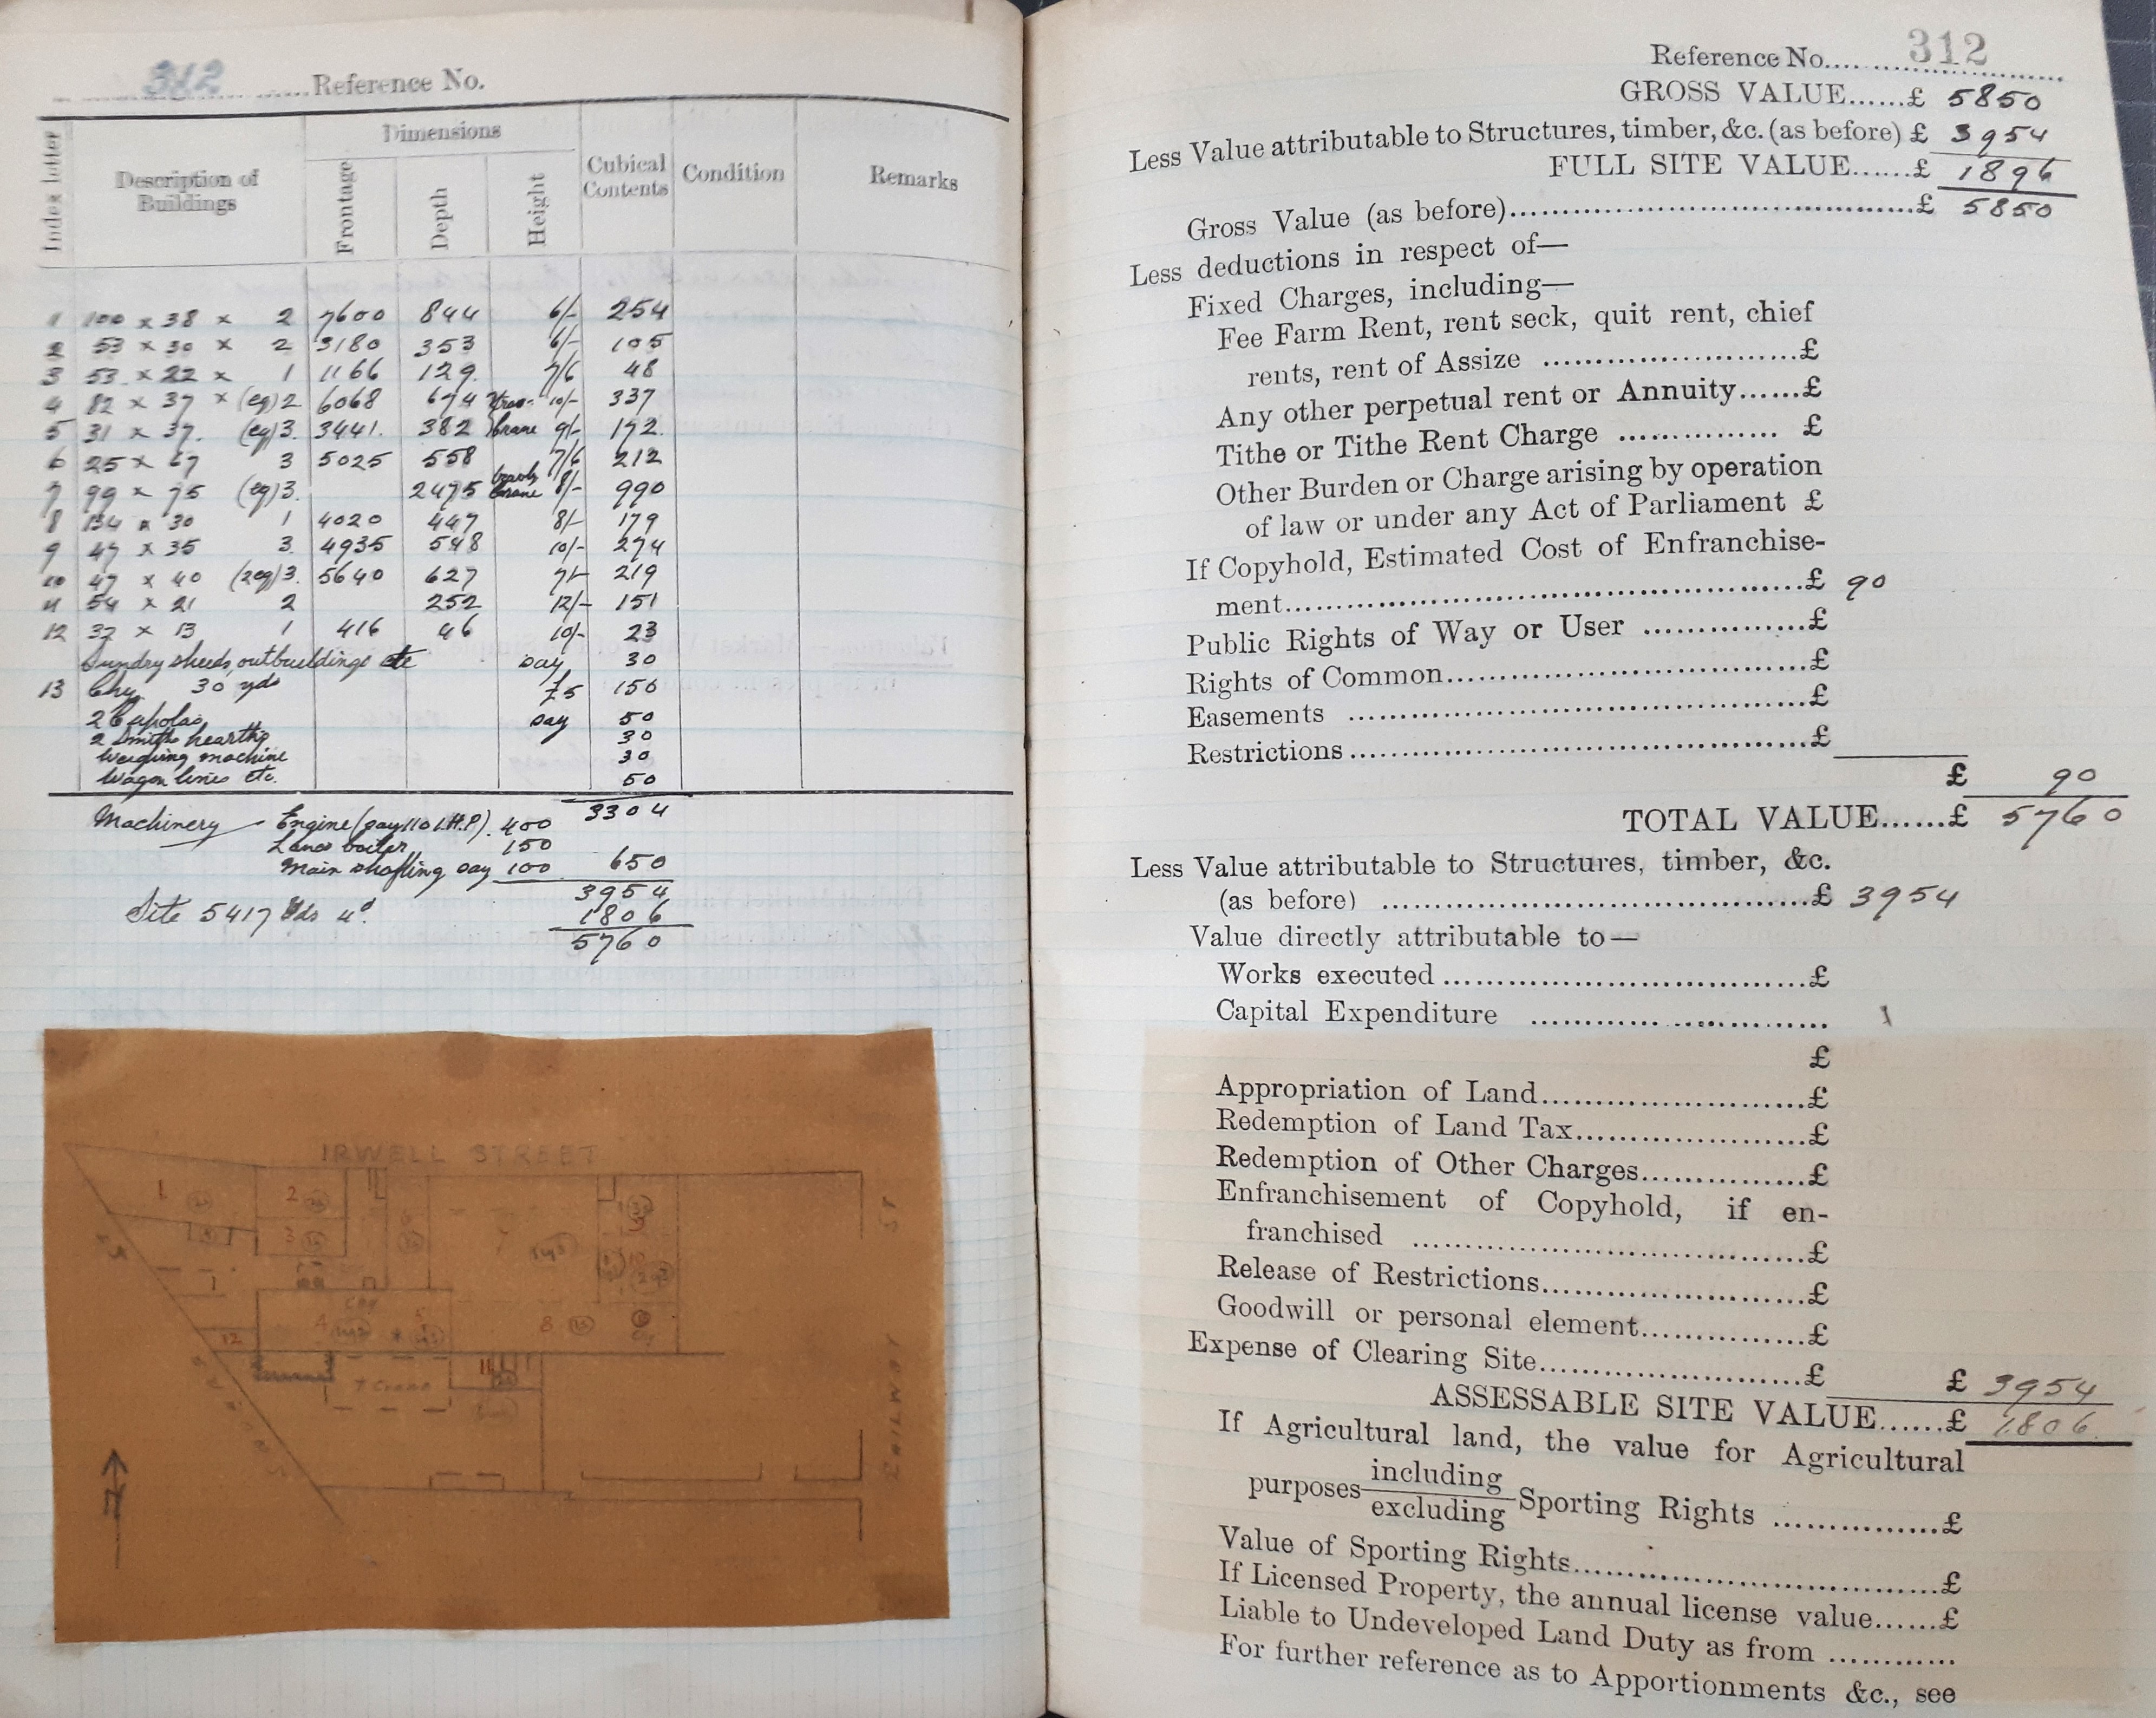 312 Reference No.
Index letter
Description of Buildings
Dimensions
Frontage
Depth
Height
Cubical Contents
Condition
Remarks
1 100 x 38 x 2 7600 844 6/- 254
2 53 x 30 x 2 3180 353 6/- 105
3 53 x 22 x 1 1166 129 7/6 48
4 82 x 37 x (eq) 2 6068 674 10/- 337
5 31 x 37. (eq) 3. 3441. 382 crane 9/- 172.
6 25 x 67 3 5025 558 7/6 212
7 99 x 75 (eq) 3. 2475 crane 8/- 990
8 134 x 30 1 4020 447 8/- 179
9 47 x 35 3. 4935 548 10/- 274
10 47 x 40 (2eq) 3. 5640 627 7/- 219
11 54 x 21 2 252 12/- 151
12 32 x 13 1 416 46 10/- 23
Sundry sheds, outbuildings etc say 30
13 Chy. 30 yds £5 150
2 Cupolas say 50
2 Smiths hearths 30
Weighing machine 30
Wagon lines etc. 50
3304
Machinery - Engine (say 110 I.H.P). 400
Lancs boiler 150
Main shafting say 100 650
3954
Site 5417 Yds 4d. 1806
5760
IRWELL STREET
1
2
3
4
8
12
11
ST
RAILWAY
Reference No. 312
GROSS VALUE......£ 5850
Less Value attributable to Structures, timber, &c. (as before) £ 3954
FULL SITE VALUE......£ 1896
Gross Value (as before)..........£ 5850
Less deductions in respect of—
Fixed Charges, including—
Fee Farm Rent, rent seck, quit rent, chief
rents, rent of Assize ..........£
Any other perpetual rent or Annuity......£
Tithe or Tithe Rent Charge .......... £
Other Burden or Charge arising by operation
of law or under any Act of Parliament £
If Copyhold, Estimated Cost of Enfranchise-
ment..........£ 90
Public Rights of Way or User ..........£
Rights of Common..........£
Easements ..........£
Restrictions..........£
£ 90
TOTAL VALUE......£ 5760
Less Value attributable to Structures, timber, &c.
(as before) ..........£ 3954
Value directly attributable to—
Works executed..........£
Capital Expenditure ..........
£
Appropriation of Land..........£
Redemption of Land Tax..........£
Redemption of Other Charges..........£
Enfranchisement of Copyhold, if en-
franchised ..........£
Release of Restrictions..........£
Goodwill or personal element..........£
Expense of Clearing Site..........£
£ 3954
ASSESSABLE SITE VALUE......£ 1806
If Agricultural land, the value for Agricultural
purposes including
excluding Sporting Rights ..........£
Value of Sporting Rights..........£
If Licensed Property, the annual license value......£
Liable to Undeveloped Land Duty as from ..........
For further reference as to Apportionments &c., see